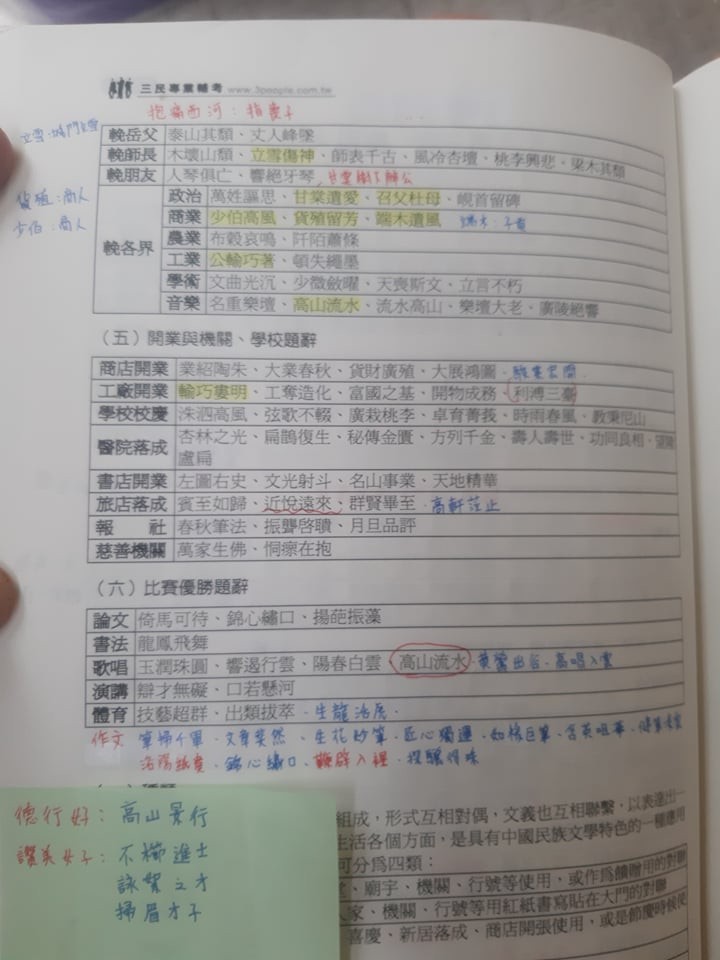 三民專業輔考 www.3people.com.tw
抱痛西河：指喪子
輓岳父 泰山其頹、丈人峰墜
立雪：
輓師長 木壞山頹、立雪傷神、師表千古、風冷杏壇、桃李興悲、梁木其頹
輓朋友 人琴俱亡、響絕牙琴
貨殖：商人
少伯：商人
輓各界
政治 萬姓謳思、甘棠遺愛、召父杜母、峴首留碑
商業 少伯高風、貨殖留芳、端木遺風 端木：子貢
農業 布穀哀鳴、阡陌蕭條
工業 公輸巧著、頓失繩墨
學術 文曲光沉、少微斂曜、天喪斯文、立言不朽
音樂 名重樂壇、高山流水、流水高山、樂壇大老、廣陵絕響
（五）開業與機關、學校題辭
商店開業 業紹陶朱、大業春秋、貨財廣殖、大展鴻圖、駿業宏開
工廠開業 輸巧婁明、工奪造化、富國之基、開物成務、利溥三臺
學校校慶 洙泗高風、弦歌不輟、廣栽桃李、卓育菁莪、時雨春風、教秉尼山
醫院落成 杏林之光、扁鵲復生、秘傳金匱、方列千金、壽人壽世、功同良相、望隆
盧扁
書店開業 左圖右史、文光射斗、名山事業、天地精華
旅店落成 賓至如歸、近悅遠來、群賢畢至、高軒蒞止
報社 春秋筆法、振聾啓聵、月旦品評
慈善機關 萬家生佛、恫瘝在抱
（六）比賽優勝題辭
論文 倚馬可待、錦心繡口、揚葩振藻
書法 龍鳳飛舞
歌唱 玉潤珠圓、響遏行雲、陽春白雲、高山流水、黃鶯出谷、高唱入雲
演講 辯才無礙、口若懸河
體育 技藝超群、出類拔萃、生龍活虎、
作文 筆掃千軍、文章斐然、生花妙筆、匠心獨運、如椽巨筆、含英咀華、
洛陽紙貴、錦心繡口、鞭辟入裡、探驪得珠
德行好：高山景行
讚美女子：不櫛進士
詠絮之才
掃眉才子
組成，形式互相對偶，文義也互相聯繫，以表達出一
生活各個方面，是具有中國民族文學特色的一種應用
可分爲四類：
、廟宇、機關、行號等使用，或作爲饋贈用的對聯
人家、機關、行號等用紅紙書寫貼在大門的對聯
喜慶、新居落成、商店開張使用，或是節慶時候使